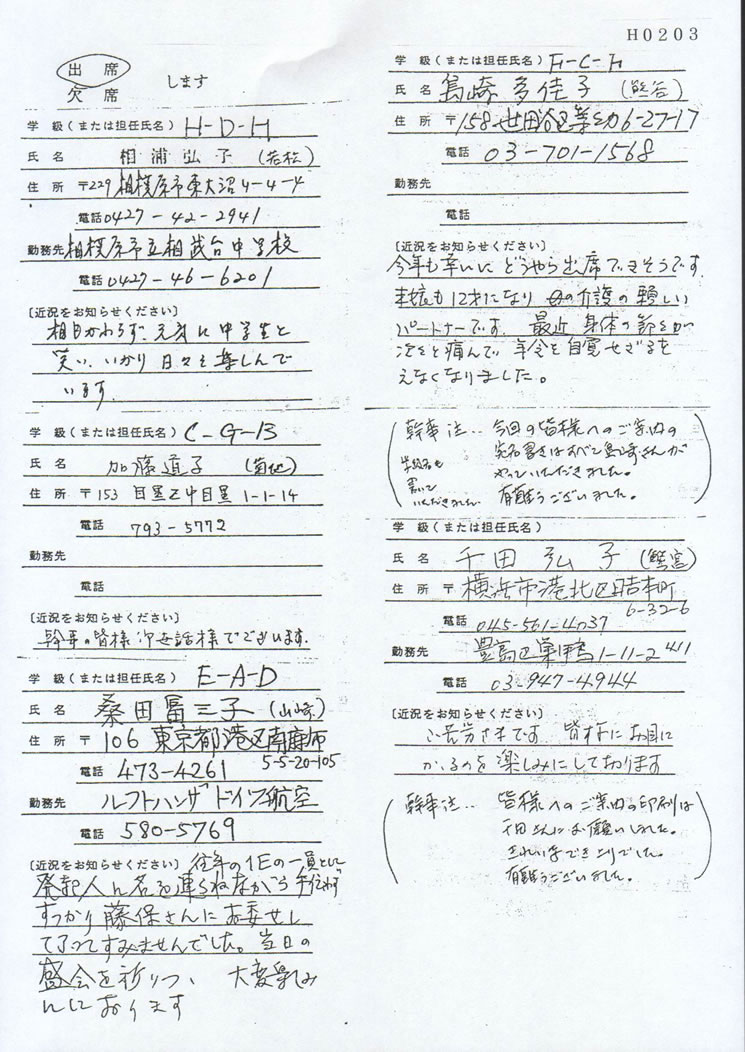 H0203
出席
欠席
します
学級(または担任氏名) H-D-H
氏名 相浦弘子 (若松)
住所 〒229 相模原市東大沼4-4-4
電話 0427-42-2941
勤務先 相模原市立相武台中学校
電話 0427-46-6201
〔近況をお知らせください〕
相変わらず、元気に中学生と
笑い、いかり 日々を楽しんで
います。
学級(または担任氏名) C-G-B
氏名 加藤道子 (菊地)
住所 〒153 目黒区中目黒 1-1-14
電話 793-5772
勤務先
電話
〔近況をお知らせください〕
幹事の皆様御世話様でございます。
学級(または担任氏名) E-A-D
氏名 桑田冨三子 (山崎)
住所 〒106 東京都港区南麻布
5-5-20-105
電話 473-4261
勤務先 ルフトハンザドイツ航空
電話 580-5769
〔近況をお知らせください〕 往年の1Eの一員として
発起人に名を連らねながら手伝わず
すっかり藤保さんにお委せし
て了ってすみませんでした。当日の
盛会を祈りつつ、大変楽しみ
にしております
学級(または担任氏名) H-C-H
氏名 島崎多佳子 (熊谷)
住所 〒158 世田谷区等々力6-27-17
電話 03-701-1568
勤務先
電話
〔近況をお知らせください〕
今年も幸いにどうやら出席できそうです。
末娘も12才になり 母の介護の頼しい
パートナーです。最近 身体の節々が
次々と痛んで 年令を自覚せざるを
えなくなりました。
幹事注‥ 今回の皆様へのご案内の
宛名書きはすべて島崎さんが
やっていただきました。
有難うございました。
学級名も
書いて
いただきました
学級(または担任氏名)
氏名 千田弘子
住所 〒 横浜市港北区日吉本町
6-32-6
電話 045-561-4037
勤務先 豊島区巣鴨1-11-2 411
電話 03-947-4944
〔近況をお知らせください〕
ご苦労さまです 皆様にお目に
かかるのを楽しみにしております
幹事注‥ 皆様へのご案内の印刷は
千田さんにお願いしました。
きれいなできあがりでした。
有難うございました。